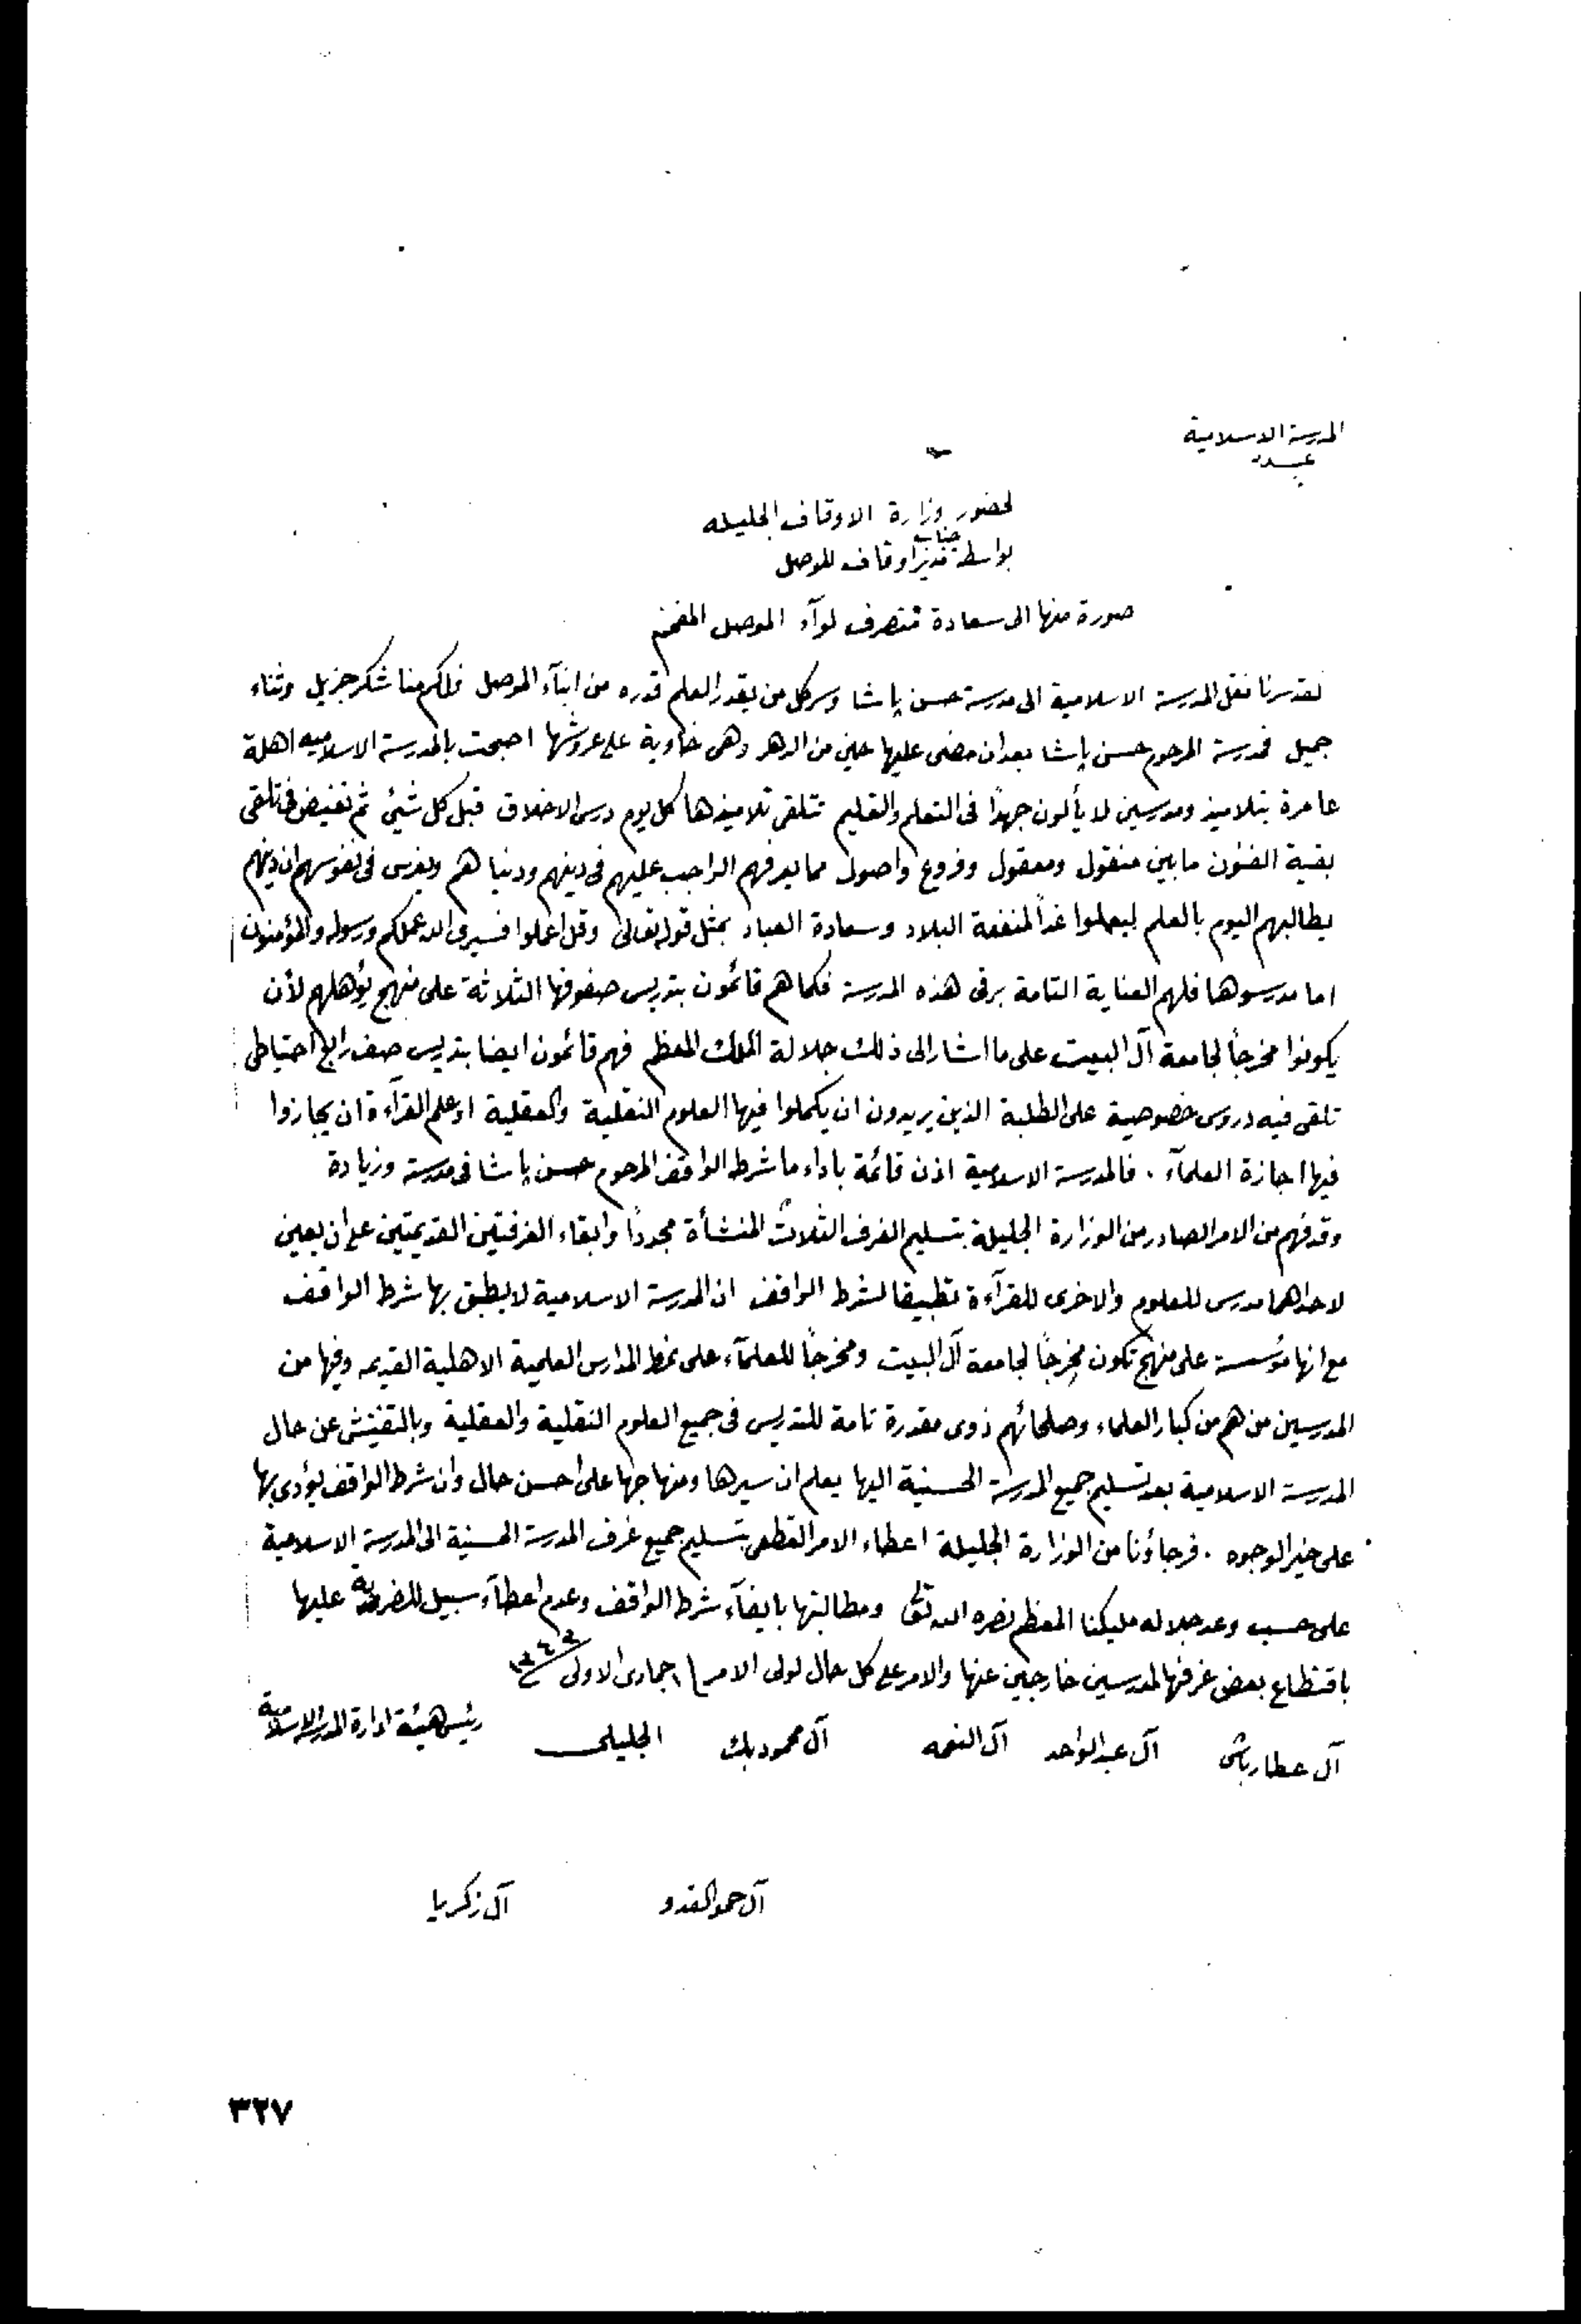 المدرسة الاسلامية
عدد
لحضور وزارة الاوقاف الجليله
بواسطة جناب مدير اوقاف الموصل
صورة منها الى سعادة متصرف لوآء الموصل المفخم
لقد سرنا نقل المدرسة الاسلامية الى مدرسة حسن پاشا وسر كل من يقدر العلم قدره من ابنآء الموصل فلكم منا شكر جزيل وثناء
جميل فمدرسة المرحوم حسن پاشا بعد ان مضى عليها حين من الدهر وهى خاوية على عروشها اصبحت بالمدرسة الاسلاميه اهلة
عامرة بتلاميذ ومدرسين لا يألون جهدًا فى التعلم والتعليم تتلقى تلاميذها كل يوم درس الاخلاق قبل كل شيئ ثم تفيض فى تلقى
بقية الفنون ما بين منقول ومعقول وفروع واصول مما يعرفهم الواجب عليهم فى دينهم ودنيا هم ويغرس فى نفوسهم ان دينهم
يطالبهم اليوم بالعلم ليعملوا غداً لمنفعة البلاد وسعادة العباد بمثل قوله تعالى وقل اعملوا فسيرى الله عملكم ورسوله والمؤمنون
اما مدرسوها فلهم العناية التامة برقى هذه المدرسة فكما هم قائمون بتدريس صفوفها الثلاثة على منهج يؤهلهم لأن
يكونوا مخرجاً لجامعة آل البيت على ما اشار الى ذلك جلالة الملك المعظم فهم قائمون ايضا بتدريس صف رابع احتياطى
تلقى فيه دروس خصوصية على الطلبة الذين يريدون ان يكملوا فيها العلوم النقلية والعقلية او علم القرآءة ان يجازوا
فيها اجازة العلمآء . فالمدرسة الاسلامية اذن قائمة باداء ما شرط الواقف المرحوم حسن پاشا فى مدرسته وزيادة
وقد فهم من الامر الصادر من الوزارة الجليلة بتسليم الغرف الثلاث المنشأة مجددًا وابقاء الغرفتين القديمتين على ان يعين
لاحداهما مدرس للعلوم والاخرى للقرآءة تطبيقا لشرط الواقف ان المدرسة الاسلامية لا يطبق بها شرط الواقف
مع انها مؤسسة على منهج تكون مخرجاً لجامعة آل البيت ومخرجاً للعلمآء على نمط المدارس العلمية الاهلية القديمه وفيها من
المدرسين من هم من كبار العلماء وصلحائهم ذوى مقدرة تامة للتدريس فى جميع العلوم النقلية والعقلية وبالتفتيش عن حال
المدرسة الاسلامية بعد تسليم جميع المدرسة الحسنية اليها يعلم ان سيرها ومنهاجها على احسن حال وان شرط الواقف يؤدى بها
على خير الوجوه . فرجاؤنا من الوزارة الجليلة اعطاء الامر القطعى بتسليم جميع غرف المدرسة الحسنية الى المدرسة الاسلامية
على حسب وعد جلاله مليكنا المعظم نصره الله تعالى ومطالبتها بايفآء شرط الواقف وعدم اعطآء سبيل عليها
باقتطاع بعض غرفها لمدرسين خارجين عنها والامر على كل حال لولى الامر جمادى الاولى
رئيس هيئة ادارة المدرسة الاسلامية
آل عطار باشى آل عبد الواحد آل النعمه آل محمود بك الجليلى
آل حمو القدو آل زكريا
٣٢٧